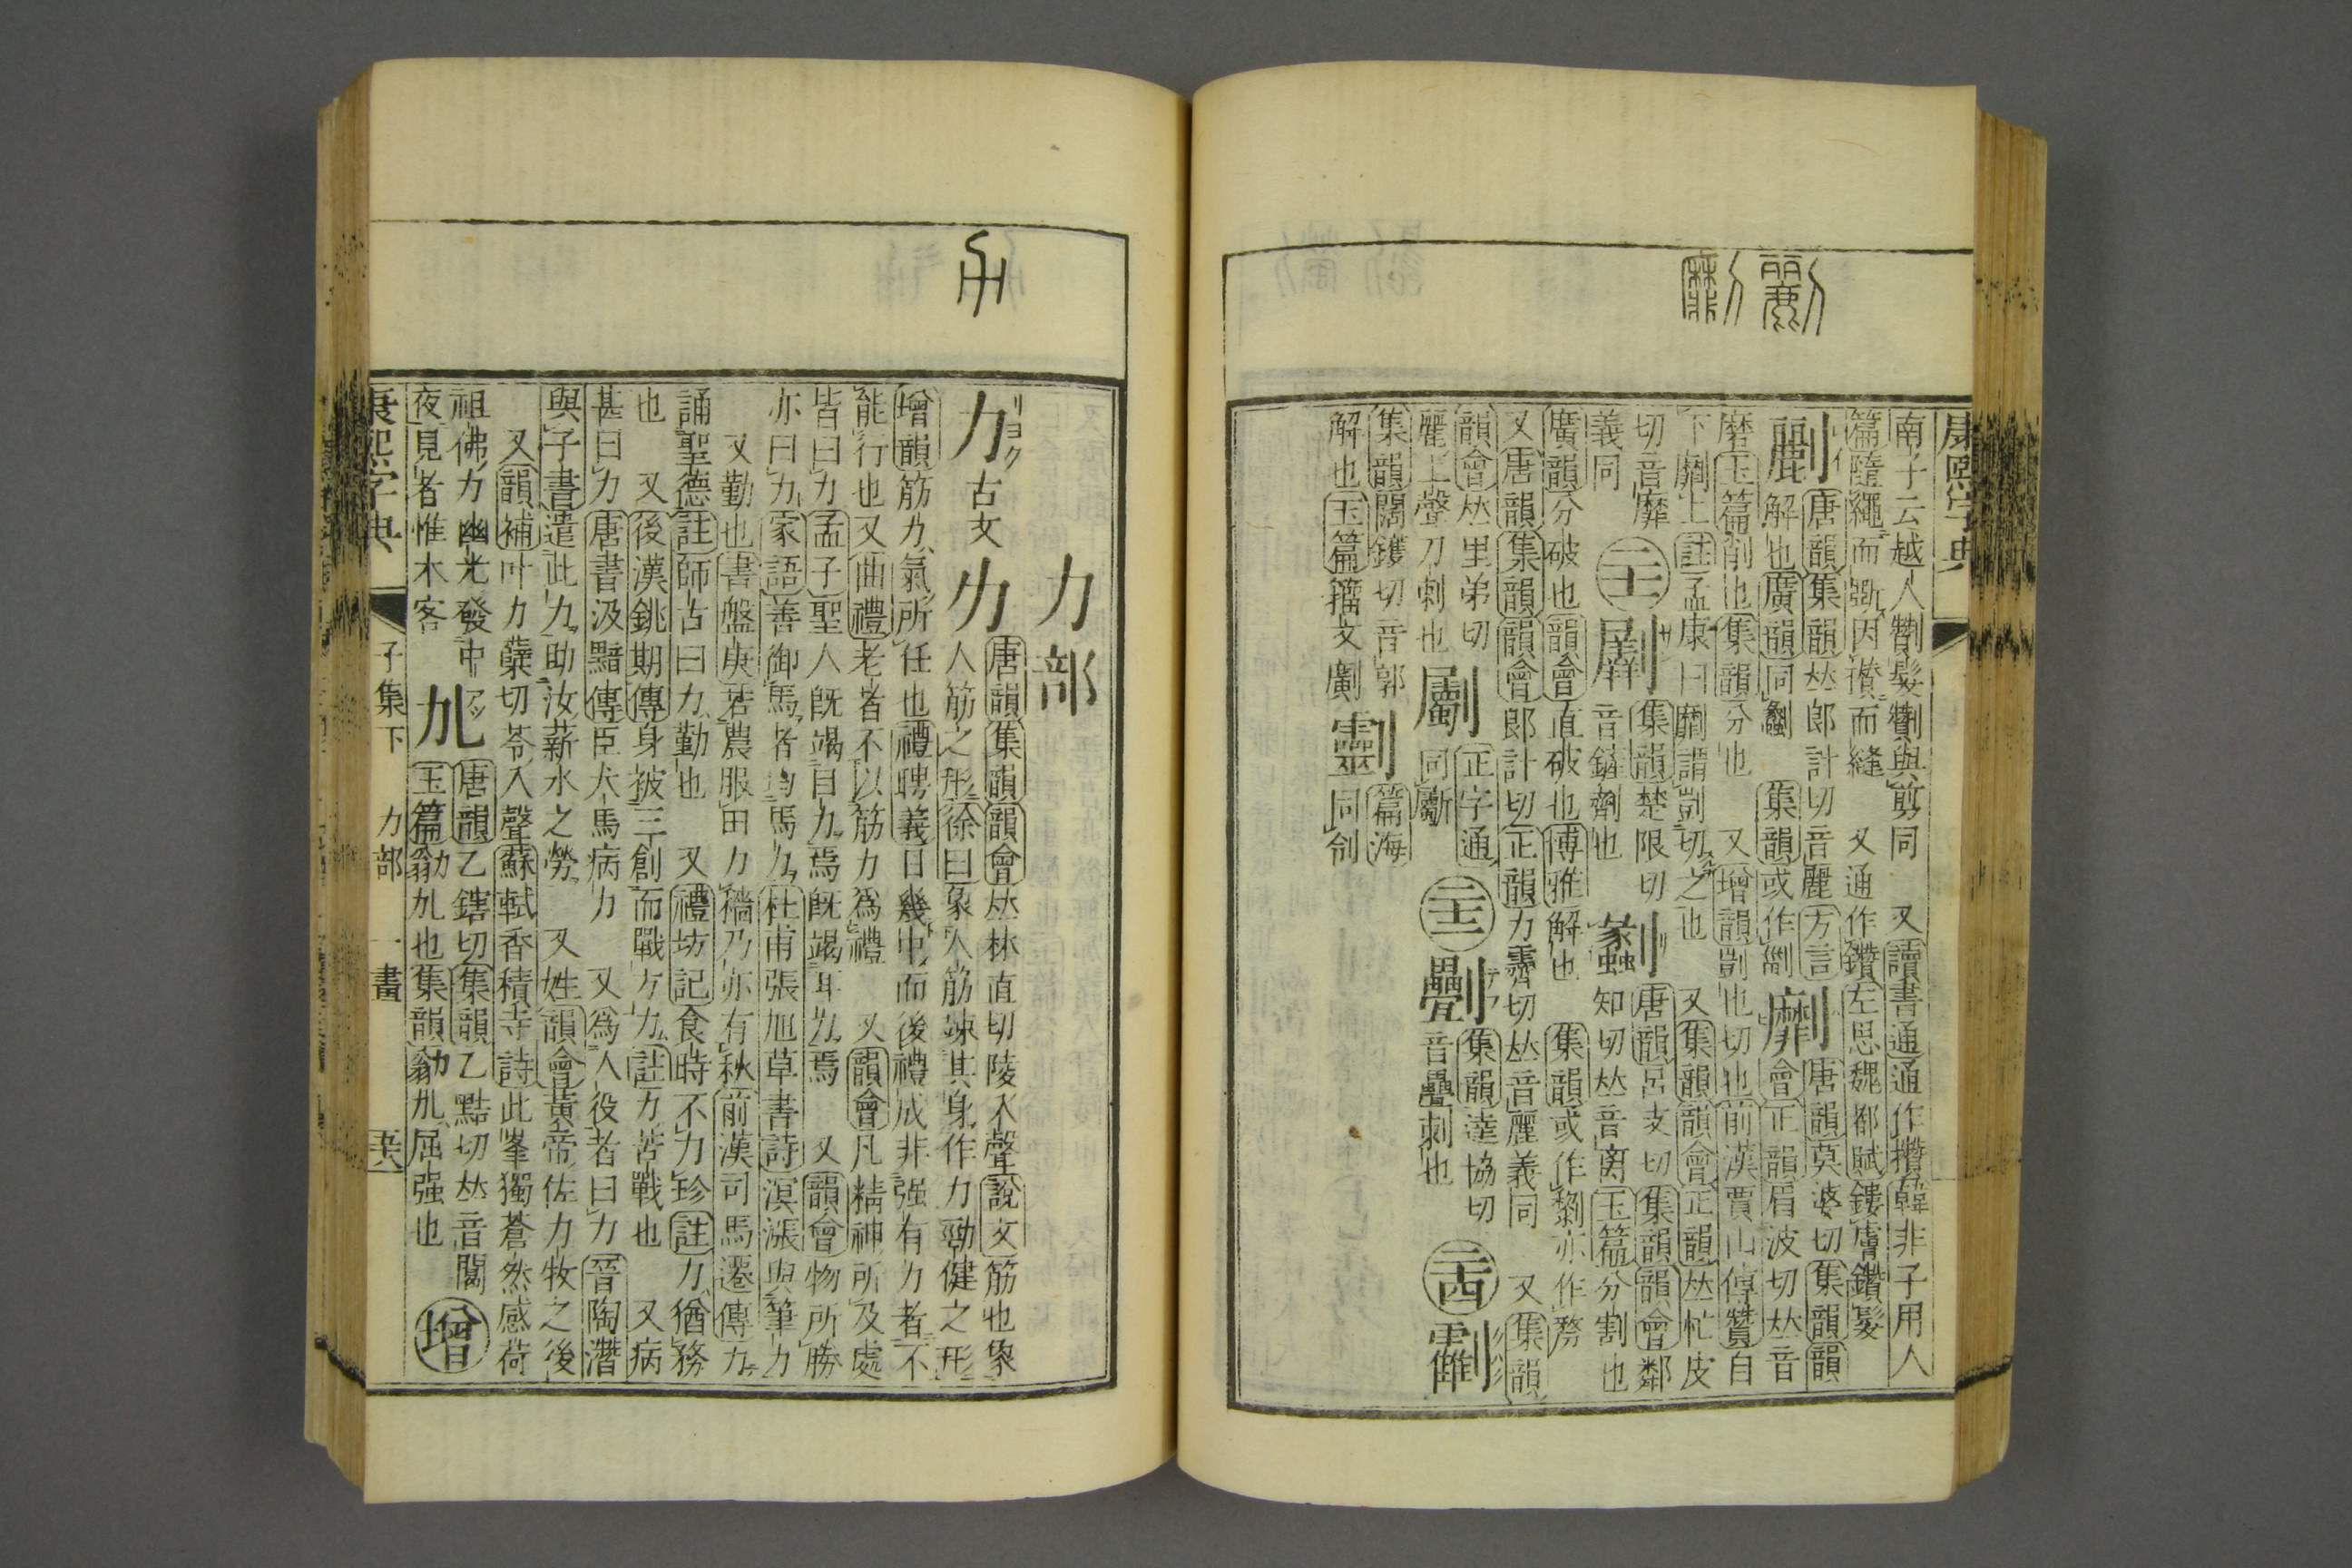 康熙字典
南子云越人劗髮劗與剪同　又讀書通通作攢韓非子用人
篇隨繩而斲因攢而縫　又通作鑽左思魏都賦鏤膚鑽髮
唐韻集韻𠀤郎計切音麗方言　劘　唐韻莫婆切集韻韻
解也廣韻同　集韻或作　會正韻眉波切𠀤音
磨玉篇削也集韻分也　又增韻剴也切也前漢賈山傳贊自
下劘上註孟康曰劘謂剴切之也　又集韻韻會正韻𠀤忙皮
切音靡　集韻楚限切　劙　唐韻呂支切集韻韻會鄰
義同　音鏟劑也　知切𠀤音离玉篇分割也
廣韻分破也韻會直破也博雅解也　集韻或作　亦作
又唐韻集韻韻會郎計切正韻力霽切𠀤音麗義同　又集韻
韻會𠀤里弟切　劚　正字通　集韻達協切
麗上聲刀刺也　同斸　音疊刺也
集韻闊鑊切音郭　篇海
解也玉篇籀文　同刢
力部
リヨク
力　古文　唐韻集韻韻會𠀤林直切陵入聲說文筋也象
人筋之形徐曰象人筋竦其身作力勁健之形
增韻筋力氣所任也禮聘義日幾中而後禮成非强有力者不
能行也又曲禮老者不以筋力爲禮　又韻會凡精神所及處
皆曰力孟子聖人旣竭目力焉旣竭耳力焉　又韻會物所勝
亦曰力家語善御馬者均馬力杜甫張旭草書詩溟漲與筆力
又勤也書盤庚若農服田力穡乃亦有秋前漢司馬遷傳力
誦聖德註師古曰力勤也　又禮坊記食時不力珍註力猶務
也　又後漢銚期傳身被三創而戰方力註力苦戰也　又病
甚曰力唐書汲黯傳臣犬馬病力　又爲人役者曰力晉陶潛
與子書遣此力助汝薪水之勞　又姓韻會黃帝佐力牧之後
又韻補叶力蘖切苓入聲蘇軾香積寺詩此峯獨蒼然感荷
祖佛力幽光發中　唐韻乙鎋切集韻乙黠切𠀤音閼
夜見者惟木客　玉篇　也集韻　屈强也　增
康熙字典　子集下　力部　一畫